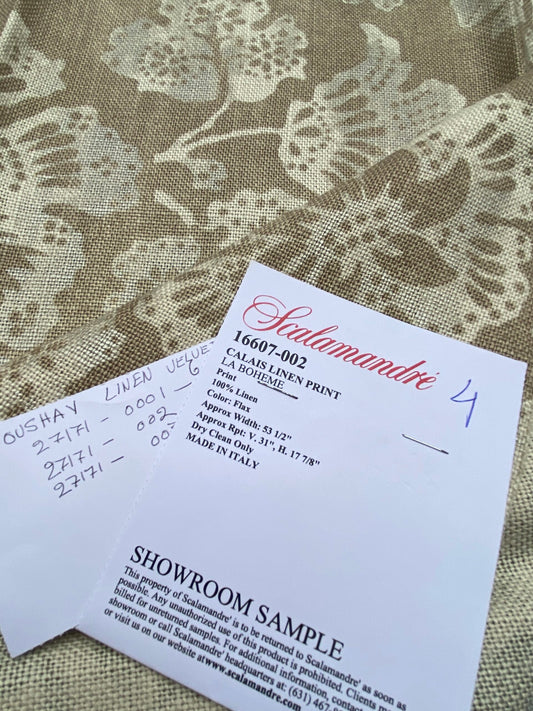 Scalamandré
16607-002
CALAIS LINEN PRINT
LA BOHEME
Print
100% Linen
Color: Flax
Approx Width: 53 1/2"
Approx Rpt: V. 31", H. 17 7/8"
Dry Clean Only
MADE IN ITALY
4
SHOWROOM SAMPLE
This property of Scalamandre' is to be returned to Scalamandre' as soon as
possible. Any unauthorized use of this product is prohibited. Clients
billed for unreturned samples. For additional information, contact
showroom or call Scalamandre' headquarters at: (631) 467-8
or visit us on our website at www.scalamandre.com
OUSHAV LINEN VELVE
27171 - 0001 - 6
27171 - 002
27171 -